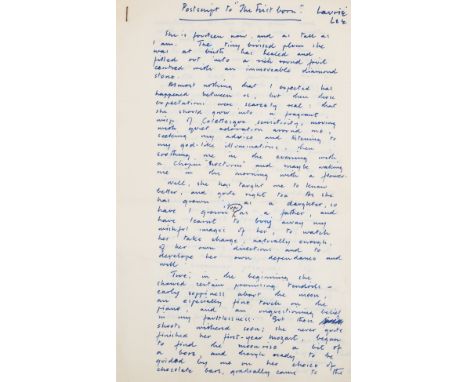 Postscript to "The Firstborn".
Laurie
Lee
She is fourteen now, and as tall as
I am. The tiny bruised plum she
was at birth has healed and
filled out into a rich round fruit
centred with an immoveable diamond
stone.
Almost nothing that I expected has
happened between us, but then those
expectations were scarcely real: that
she should grow into a fragrant
wisp of Colettesque sensitivity, moving
with quiet adoration around me,
seeking my advice and listening to
my god-like illuminations, then
soothing me in the evening with
a Chopin Nocturne and maybe waking
me in the morning with a flower.
Well, she has taught me to know
better, and quite right too. As she
has grown up as a daughter, so
have I grown as a father, and
have learnt to bury away my
wishful images of her, to watch
her take charge, naturally enough,
of her own directions and to
develope her own dependance and
will.
True, in the beginning she
showed certain promising tendrils –
early soppiness about the moon,
an especially fine touch on the
piano, and an unquestioning belief
in my faultlessness. But these
shoots withered soon; she never quite
finished her first-year Mozart, began
to find the moonrise a bit of
a bore and though ready to be
guided by me on her choice of
chocolate bars, gradually came to the